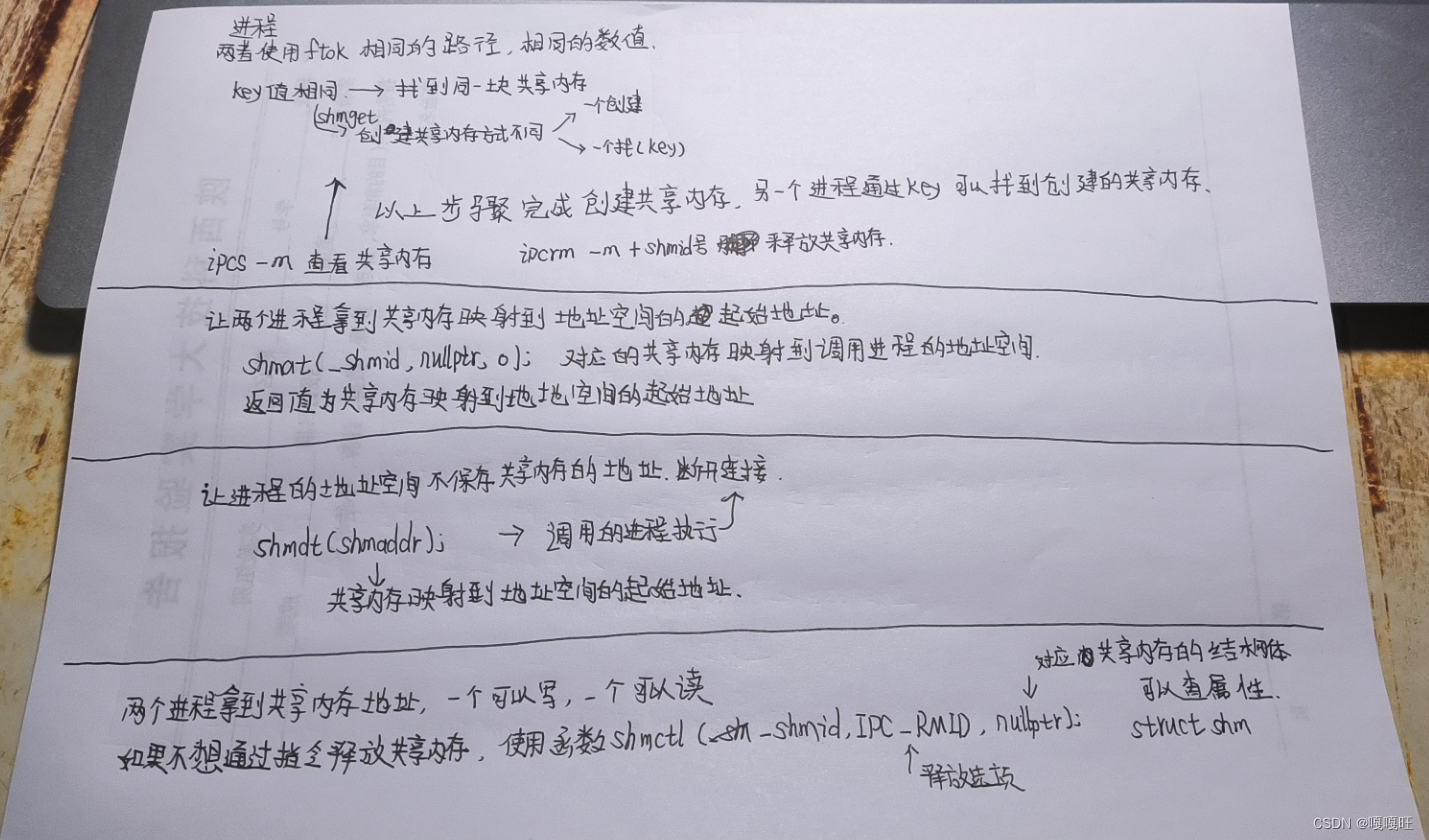 进程
两者使用ftok 相同的路径，相同的数值.
key值相同. → 找到同一块共享内存
shmget
→ 创建共享内存方式不同
一个创建
一个找(key)
以上步骤完成创建共享内存. 另一个进程通过key可以找到创建的共享内存.
ipcs -m 查看共享内存
ipcrm -m + shmid号 释放共享内存.
让两个进程拿到共享内存映射到地址空间的起始地址。
shmat(_shmid, nullptr, 0); 对应的共享内存映射到调用进程的地址空间.
返回值为共享内存映射到地址空间的起始地址
让进程的地址空间不保存共享内存的地址. 断开连接.
shmdt(shmaddr); → 调用的进程执行
↓
共享内存映射到地址空间的起始地址.
对应共享内存的结构体
可以查属性.
struct shm
两个进程拿到共享内存地址, 一个可以写, 一个可以读
如果不想通过指令释放共享内存, 使用函数shmctl(_shmid, IPC_RMID, nullptr);
↑释放选项
CSDN @嘎嘎旺